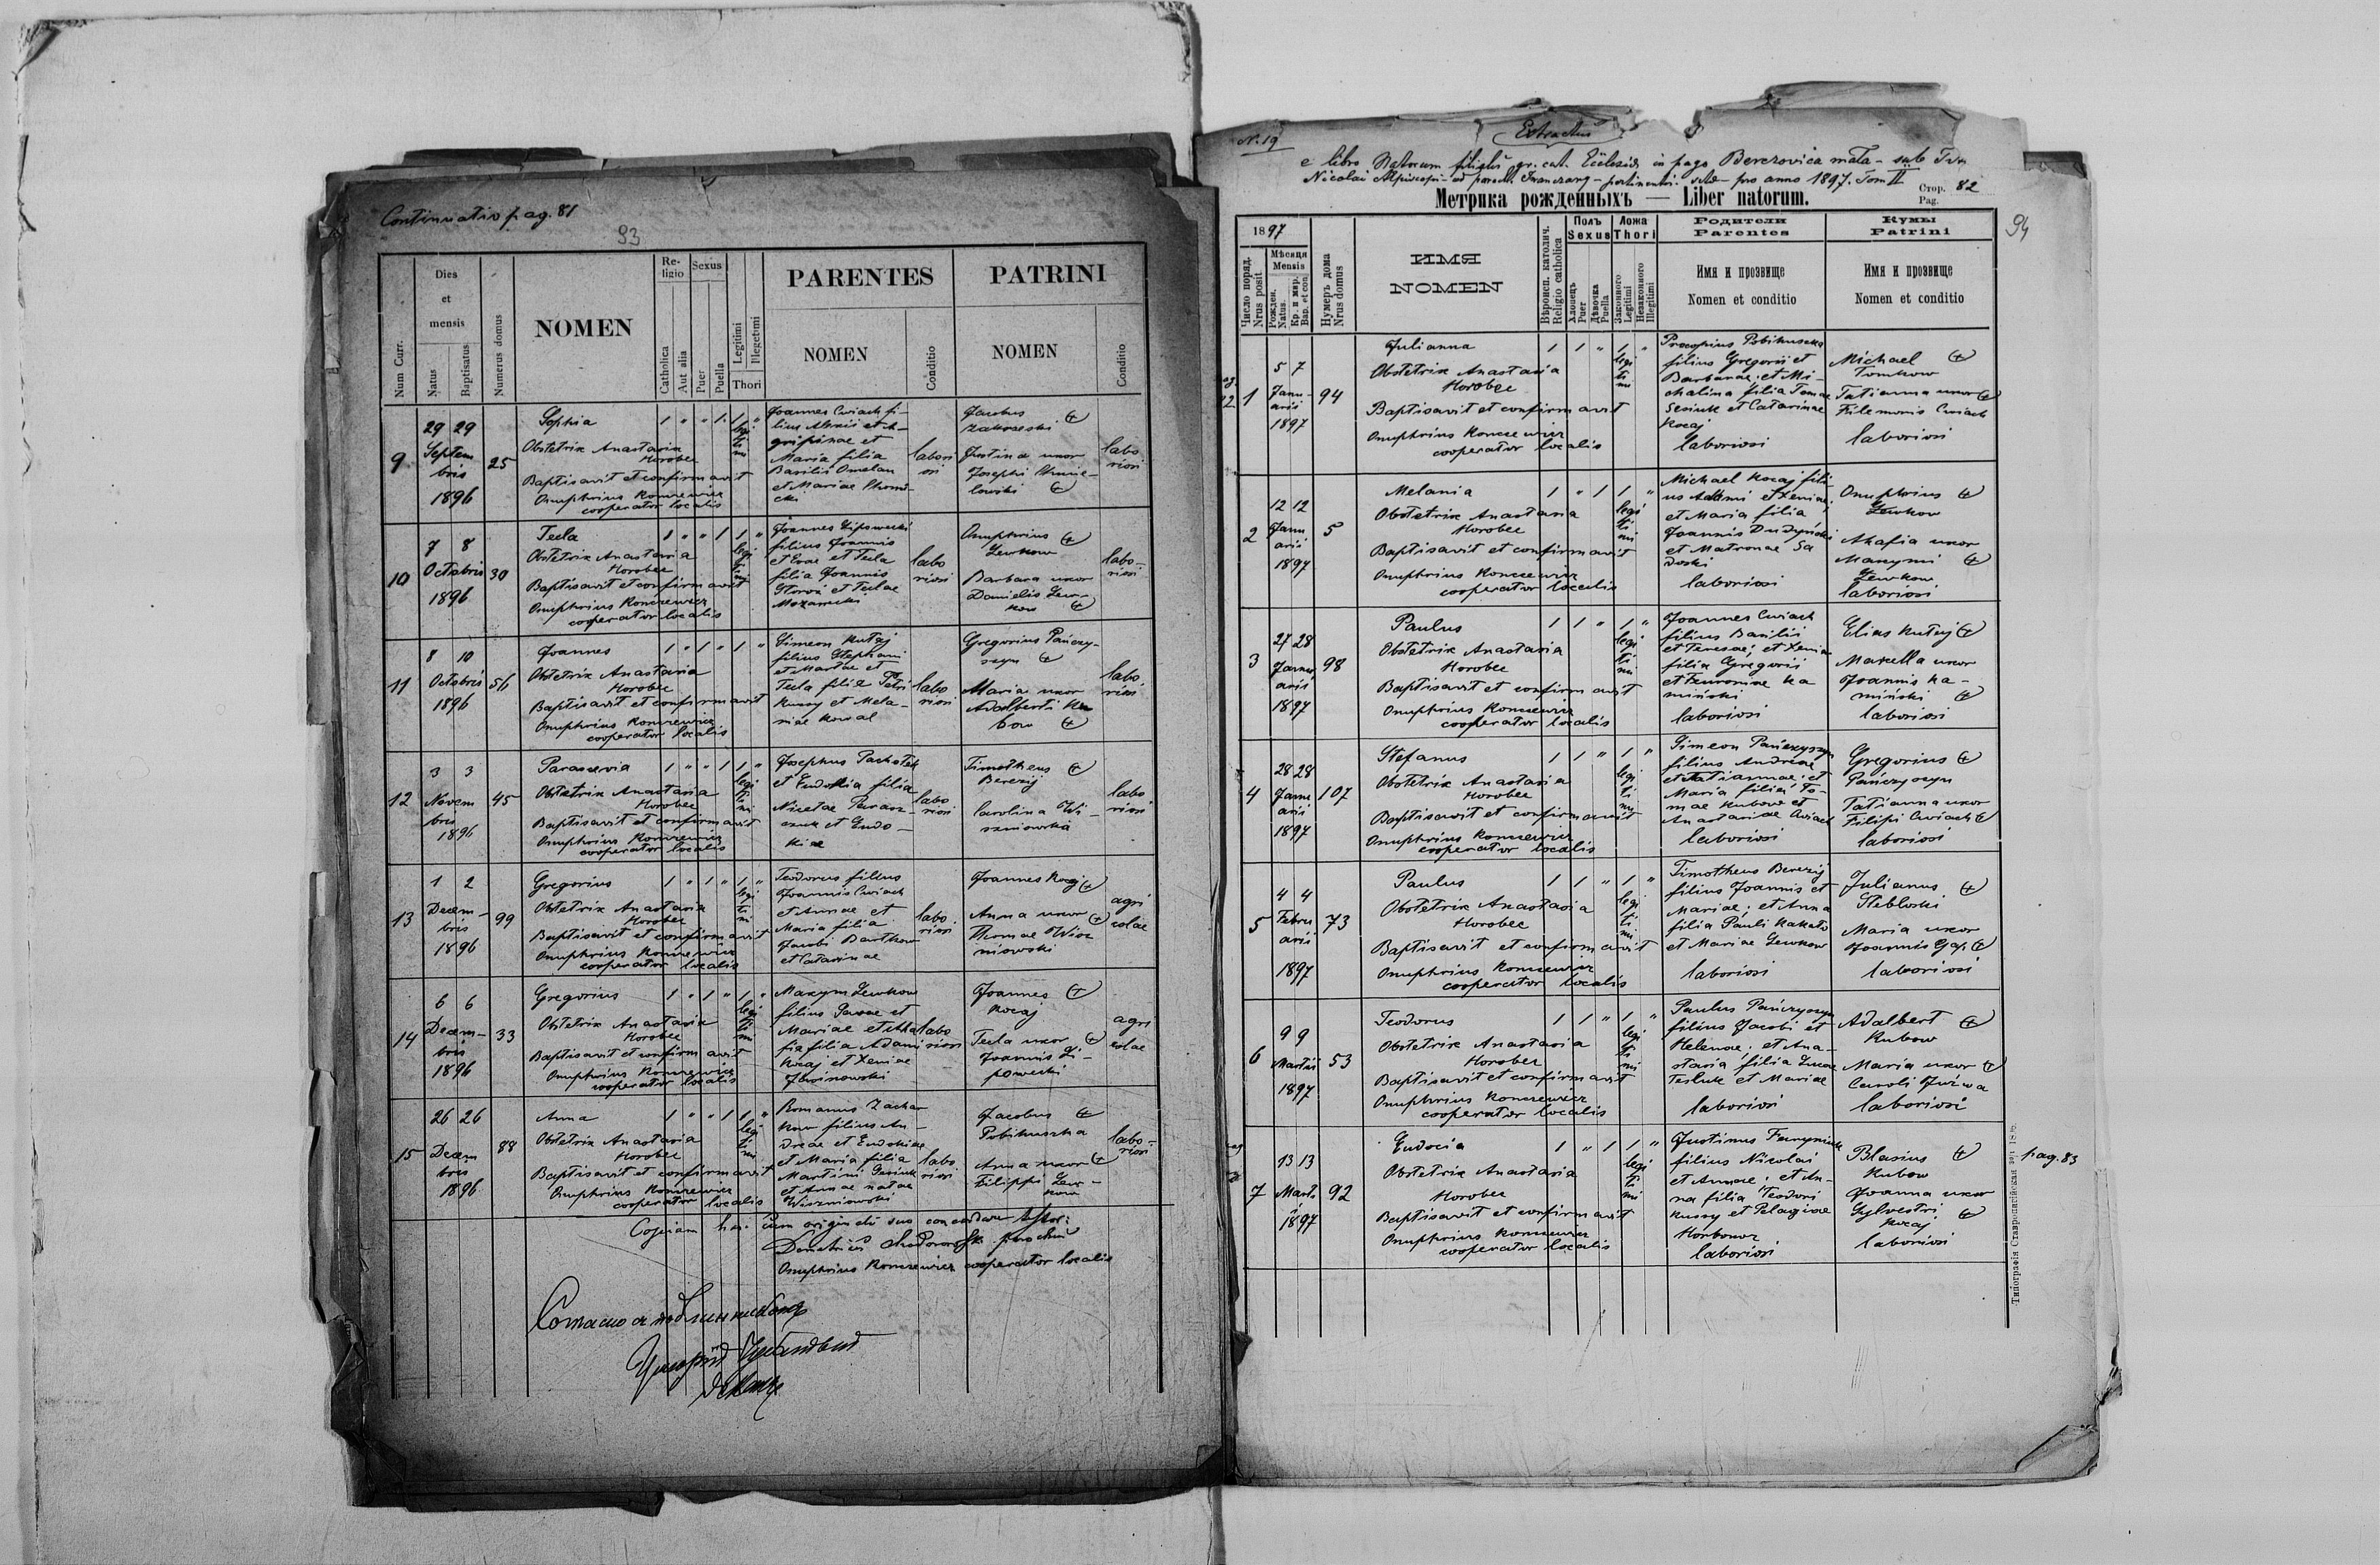 Continuatio pag. 81
93
Num Curr.
Dies
et
mensis
Natus
Baptisatus
Numerus domus
NOMEN
Re-
ligio
Catholica
Aut alia
Sexus
Puer
Puella
Legitimi
Illegetimi
Thori
PARENTES
NOMEN
Conditio
PATRINI
NOMEN
Conditio
9
29 29
Septem
bris
1896
25
Sophia
Obstetrix Anastasia
Horobec
Baptisavit et confirmavit
Onuphrius Konczewicz
cooperator localis
1 " " 1 1 "
legi
ti
mi
Joannes Cwiach fi-
lius Alexii et A-
gripinae et
Maria filia
Basilii Omelan
et Mariae
labori
osi
Jacobus
Justina uxor
Josephi
labo
riosi
10
7 8
Octobris
1896
30
Tecla
Obstetrix Anastasia
Horobec
Baptisavit et confirmavit
Onuphrius Konczewicz
cooperator localis
1 " " 1 1 "
legi
ti
mi
Joannes Lipowecki
filius Joannis
et Evae et Tecla
filia Joannis
et Teclae
labo
riosi
Onuphrius
Lewkow
Barbara uxor
Danielis Lew-
kow
labo-
riosi
11
8 10
Octobris
1896
56
Joannes
Obstetrix Anastasia
Horobec
Baptisavit et confirmavit
Onuphrius Konczewicz
cooperator localis
1 " 1 " 1 "
Simeon Kutaj
filius Stephani
et Marthae et
Tecla filia Petri
Kussy et Mela-
niae Kowal
labo
riosi
Gregorius Pańczy-
szyn
Maria uxor
Adalberti Ku
bow
labo
riosi
12
3 3
Novem
bris
1896
45
Parascevia
Obstetrix Anastasia
Horobec
Baptisavit et confirmavit
Onuphrius Konczewicz
cooperator localis
1 " " 1 1 "
legi
ti
mi
Josephus Pachołek
et Eudokia filia
Nicetae
et Eudo-
kiae
labo
riosi
Timotheus
Berezij
Carolina Wi-
szniowska
labo
riosi
13
1 2
Decem-
bris
1896
99
Gregorius
Obstetrix Anastasia
Horobec
Baptisavit et confirmavit
Onuphrius Konczewicz
cooperator localis
1 " 1 " 1 "
legi
ti
mi
Teodorus filius
Joannis Cwiach
et Annae et
Maria filia
Jacobi Bartkow
et Catarinae
labo
riosi
Joannes Kocaj
Anna uxor
Thomae Wisz
niowski
agri
colae
14
6 6
Decem-
bris
1896
33
Gregorius
Obstetrix Anastasia
Horobec
Baptisavit et confirmavit
Onuphrius Konczewicz
cooperator localis
1 " 1 " 1 "
legi
ti
mi
Maxym Lewkow
filius Savae et
Mariae et Aha
fia filia Adami
Kocaj et Xeniae
labo
riosi
Joannes
Kocaj
Tecla uxor
Joannis Li-
powecki
agri
colae
15
26 26
Decem
bris
1896
88
Anna
Obstetrix Anastasia
Horobec
Baptisavit et confirmavit
Onuphrius Konczewicz
cooperator localis
1 " " 1 1 "
legi
ti
mi
Romanus Zachar
kow filius An-
dreae et Eudokiae
et Maria filia
Martini Gesiuk
et Annae natae
Wiszniowski
labo
riosi
Jacobus
Pobihuszka
Anna uxor
Filippi Lew-
kow
labo-
riosi
Copiam hanc cum originali suo concordare testor:
Onuphrius Konczewicz cooperator localis
N. 19
Extractus
e libro Natorum filialis gr. cat. Ecclesiae in pago Berezovica mała - sub
Nicolai pro anno 1897. Tom II
Метрика рожденныхъ — Liber natorum.
Стор. 82
Pag.
94
1897
Число поряд.
Nrus posit
Мѣсяця
Mensis
Рожден.
Natus.
Кр. и мѵр.
Bap. et con.
Нумеръ дома
Nrus domus
ИМЯ
NOMEN
Вѣроисп. католич.
Religio catholica
Полъ
Sexus
Хлопецъ
Puer
Дѣвочка
Puella
Ложа
Thori
Законного
Legitimi
Незаконного
Illegitimi
Родители
Parentes
Имя и прозвище
Nomen et conditio
Кумы
Patrini
Имя и прозвище
Nomen et conditio
1
5 7
Janu-
arii
1897
94
Julianna
Obstetrix Anastasia
Horobec
Baptisavit et confirmavit
Onuphrius Konczewicz
cooperator localis
1 1 " 1 "
legi
ti
mi
Procopius Pobihuszka
filius Gregorii et
Barbarae; et Mi-
chalina filia Tomae
Gesiuk et Catarinae
Kocaj
laboriosi
Michael
Tomkow
Tatianna uxor
Filemonis Cwiach
laboriosi
2
12 12
Janu
arii
1897
5
Melania
Obstetrix Anastasia
Horobec
Baptisavit et confirmavit
Onuphrius Konczewicz
cooperator localis
1 " 1 1 "
legi
ti
mi
Michael Kocaj fili-
us Adami et Xeniae;
et Maria filia
Joannis Dudyński
et Matronae Sa
doski
laboriosi
Onuphrius
Lewkow
Ahafia uxor
Maxymi
Lewkow
laboriosi
3
27 28
Janu
arii
1897
98
Paulus
Obstetrix Anastasia
Horobec
Baptisavit et confirmavit
Onuphrius Konczewicz
cooperator localis
1 1 " 1 "
legi
ti
mi
Joannes Cwiach
filius Basilii
et Teresae; et Xenia
filia Gregorii
et Feuroniae Ka
miński
laboriosi
Elias Kutaj
Maxella uxor
Joannis Ka-
miński
laboriosi
4
28 28
Janu
arii
1897
107
Stefanus
Obstetrix Anastasia
Horobec
Baptisavit et confirmavit
Onuphrius Konczewicz
cooperator localis
1 1 " 1 "
legi
ti
mi
Simeon Pańczyszyn
filius Andreae
et Tatiannae; et
Maria filia To-
mae Kubow et
Anastasiae Cwiach
laboriosi
Gregorius
Pańczyszyn
Tatianna uxor
Filipi Cwiach
laboriosi
5
4 4
Febru
arii
1897
73
Paulus
Obstetrix Anastasia
Horobec
Baptisavit et confirmavit
Onuphrius Konczewicz
cooperator localis
1 1 " 1 "
legi
ti
mi
Timotheus Berezij
filius Joannis et
Mariae; et Anna
filia Pauli
et Mariae Lewkow
laboriosi
Julianus
Steblecki
Maria uxor
Joannis Gap
laboriosi
6
9 9
Martii
1897
53
Teodorus
Obstetrix Anastasia
Horobec
Baptisavit et confirmavit
Onuphrius Konczewicz
cooperator localis
1 1 " 1 "
legi
ti
mi
Paulus Pańczyszyn
filius Jacobi et
Helenae; et Ana-
stasia filia Lucae
Tesluk et Mariae
laboriosi
Adalbert
Kubow
Maria uxor
Caroli
laboriosi
7
13 13
Marti
i
1897
92
Eudocia
Obstetrix Anastasia
Horobec
Baptisavit et confirmavit
Onuphrius Konczewicz
cooperator localis
1 " 1 1 "
legi
ti
mi
Justinus
filius Nicolai
et Annae; et An-
na filia Teodori
Kussy et Pelagiae
laboriosi
Blasius
Kubow
Joanna uxor
Sylvestri
Kocaj
laboriosi
pag. 83